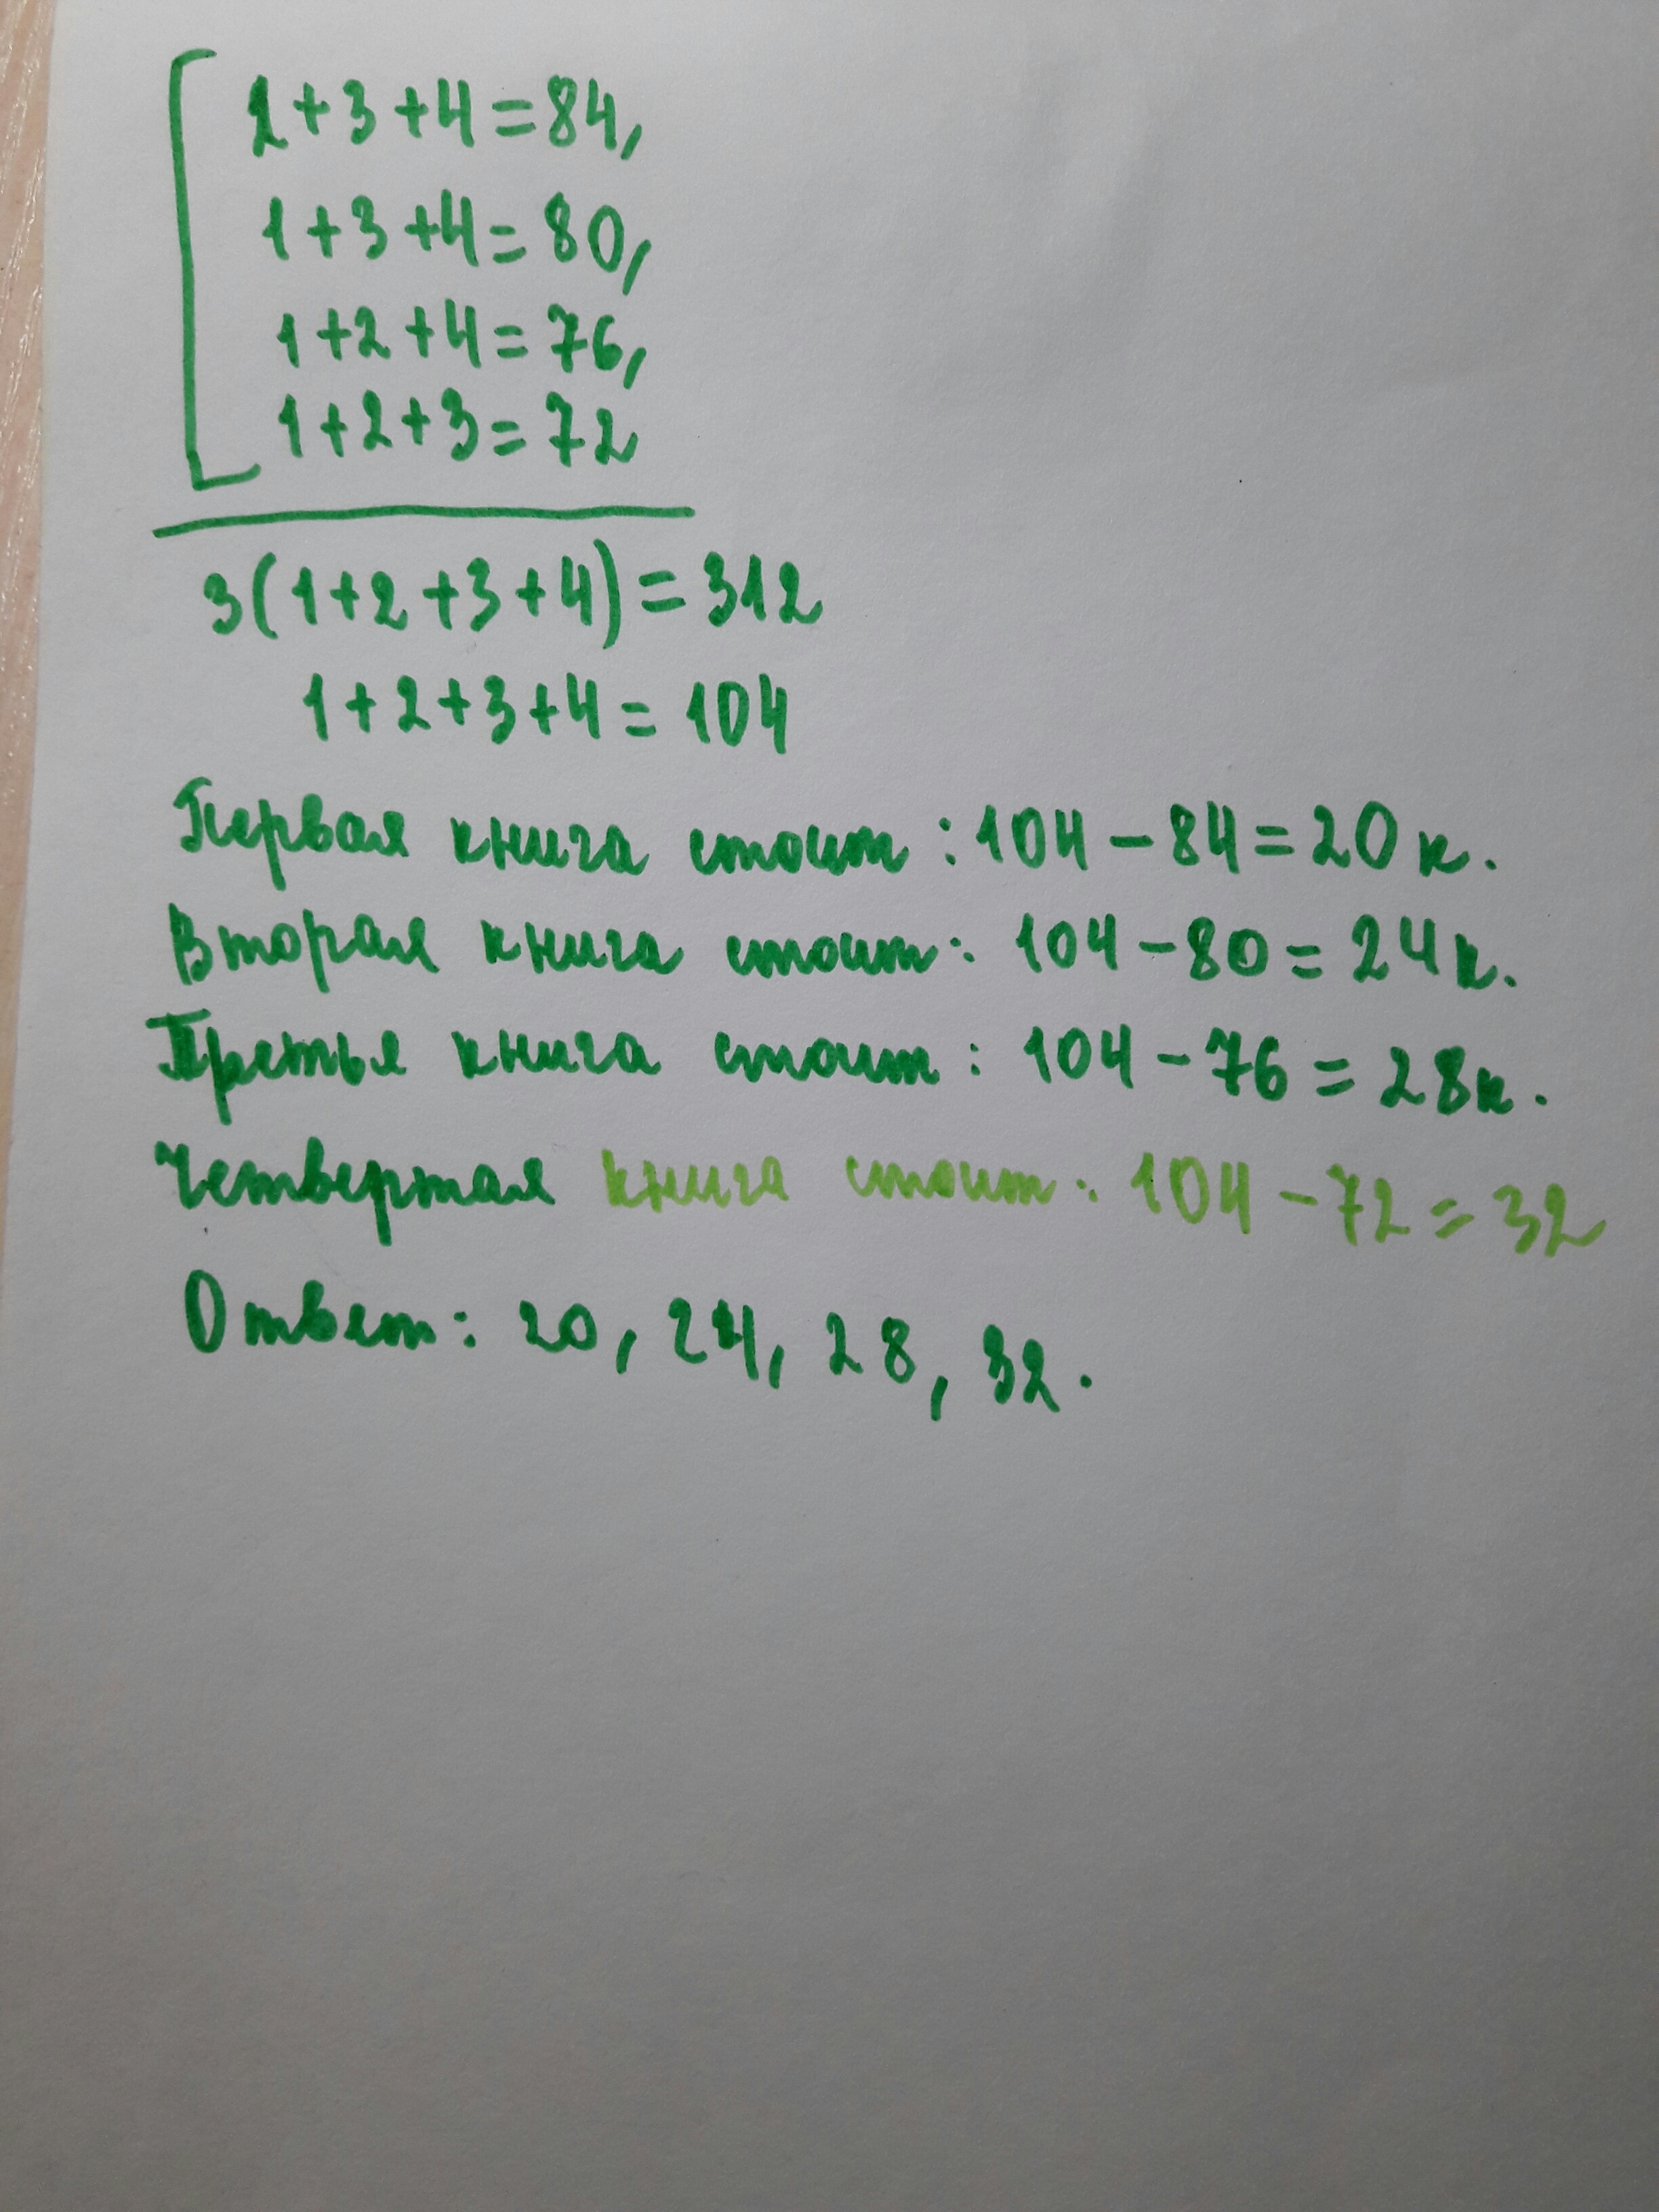 2+3+4=84,
1+3+4=80,
1+2+4=76,
1+2+3=72
3(1+2+3+4)=312
1+2+3+4=104
Первая книга стоит: 104-84=20к.
Вторая книга стоит: 104-80=24к.
Третья книга стоит: 104-76=28к.
Четвертая книга стоит: 104-72=32
Ответ: 20, 24, 28, 32.